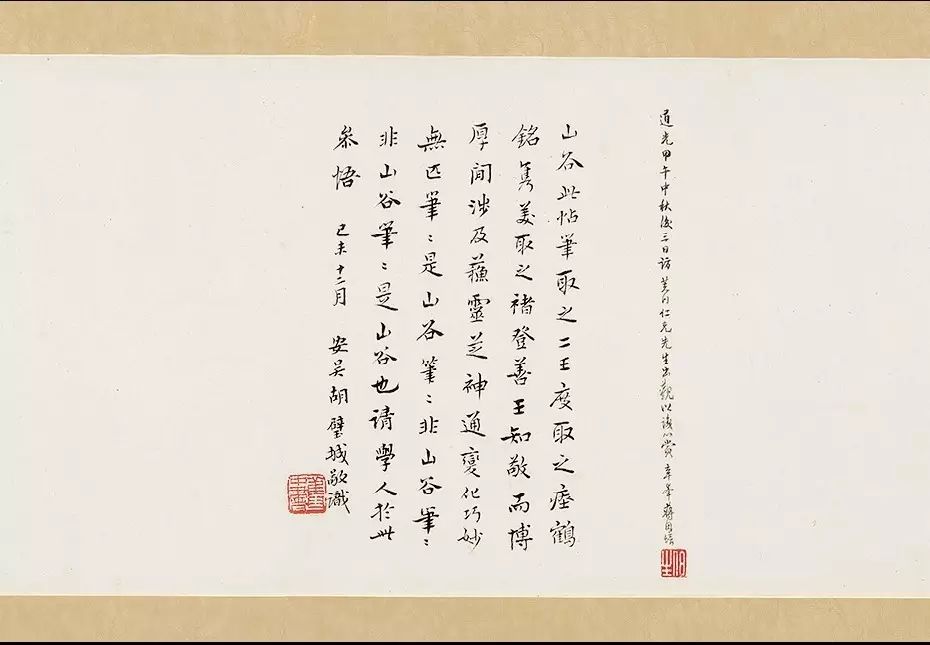 道光甲午中秋後三日訪仁元先生出觀以誌心賞
山谷此帖筆取之二王度取之瘞鶴
銘雋美取之褚登善王知敬而博
厚間涉及蘇靈芝神通變化巧妙
無匹筆〻是山谷筆〻非山谷筆〻
非山谷筆〻是山谷也請學人於此
叅悟 己未十二月 安吳胡璧城敬識